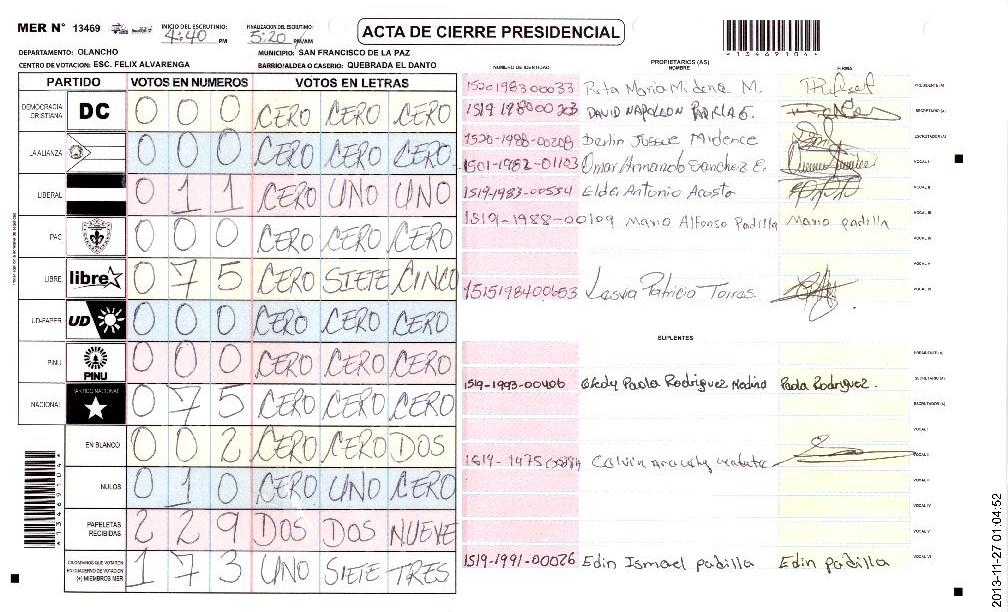 MER Nº 13469
INICIO DEL ESCRUTINIO: 4:40 PM
FINALIZACION DEL ESCRUTINIO: 5:20 PM/AM
ACTA DE CIERRE PRESIDENCIAL
*13469104*
DEPARTAMENTO: OLANCHO
MUNICIPIO: SAN FRANCISCO DE LA PAZ
CENTRO DE VOTACION: ESC. FELIX ALVARENGA
BARRIO/ALDEA O CASERIO: QUEBRADA EL DANTO
PARTIDO VOTOS EN NUMEROS VOTOS EN LETRAS
DEMOCRACIA CRISTIANA DC 0 0 0 CERO CERO CERO
LA ALIANZA 0 0 0 CERO CERO CERO
LIBERAL 0 1 1 CERO UNO UNO
PAC 0 0 0 CERO CERO CERO
LIBRE libre 0 7 5 CERO SIETE CINCO
UD-FAPER UD 0 0 0 CERO CERO CERO
PINU PINU 0 0 0 CERO CERO CERO
NACIONAL PARTIDO NACIONAL 0 7 5 CERO CERO CERO
EN BLANCO 0 0 2 CERO CERO DOS
NULOS 0 1 0 CERO UNO CERO
PAPELETAS RECIBIDAS 2 2 9 DOS DOS NUEVE
CIUDADANOS QUE VOTARON EN CUADERNO DE VOTACION (+) MIEMBROS MER 1 7 3 UNO SIETE TRES
*13469104*
PROPIETARIOS (AS)
NUMERO DE IDENTIDAD NOMBRE FIRMA
1520198300033 Rita Maria Midena M. PRESIDENTE (A)
DAVID NAPOLEON PADILLA SECRETARIO (A)
1520-1988-00209 Darlin Josue Midence ESCRUTADOR (A)
1501-1982-01103 Omar Armando Sanchez E. VOCAL I
1519-1983-00554 Elder Antonio Acosto VOCAL II
1519-1988-00109 Mario Alfonso Padilla Mario padilla VOCAL III
VOCAL IV
VOCAL V
1515198400603 Lesvia Patricia Torres. VOCAL VI
SUPLENTES
PRESIDENTE (A)
1519-1993-00406 Paola Rodriguez Medina Paola Rodriguez. SECRETARIO (A)
ESCRUTADOR (A)
VOCAL I
VOCAL II
VOCAL III
VOCAL IV
VOCAL V
1519-1991-00026 Edin Ismael padilla Edin padilla VOCAL VI
2013-11-27 01:04:52